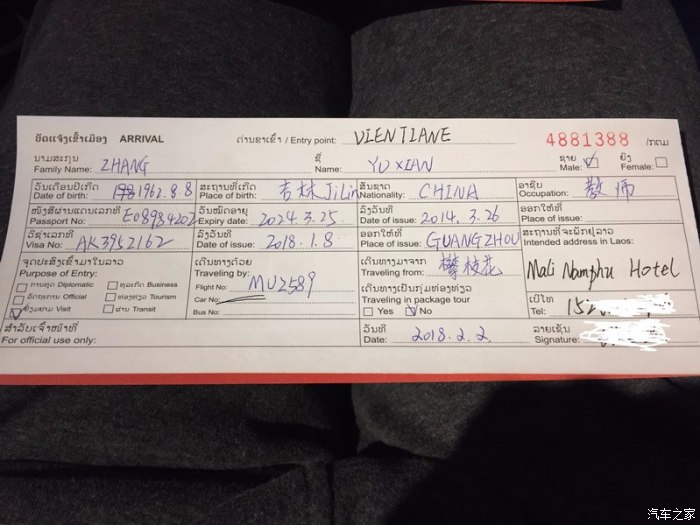 ບັດແຈ້ງເຂົ້າເມືອງ ARRIVAL ດ່ານຂາເຂົ້າ / Entry point: VIENTIANE 4881388 /ກຕມ
ນາມສະກຸນ ຊື່ ຊາຍ ຍິງ
Family Name: ZHANG Name: YUXIAN Male: Female:
ວັນເດືອນປີເກີດ ສະຖານທີ່ເກີດ ສັນຊາດ ອາຊີບ
Date of birth: 1962.8.8 Place of birth: 吉林JiLin Nationality: CHINA Occupation: 教师
ໜັງສືຜ່ານແດນເລກທີ ວັນໝົດອາຍຸ ລົງວັນທີ ອອກໃຫ້ທີ່ ສະຖານທີ່ຈະພັກຢູ່ລາວ
Passport No: Expiry date: 2024.3.25 Date of issue: 2014.3.26 Place of issue: Intended address in Laos:
ວີຊ່າເລກທີ ລົງວັນທີ ອອກໃຫ້ທີ່
Visa No: AK3952162 Date of issue: 2018.1.8 Place of issue: GUANGZHOU
Mali Namphu Hotel
ຈຸດປະສົງເຂົ້າມາໃນລາວ ເດີນທາງດ້ວຍ ເດີນທາງມາຈາກ
Purpose of Entry: Traveling by: Traveling from: 攀枝花
ການທູດ Diplomatic ທຸລະກິດ Business Flight No: MU2589
ເດີນທາງເປັນກຸ່ມທ່ອງທ່ຽວ
ລັດຖະການ Official ທ່ອງທ່ຽວ Tourism Car No: Traveling in package tour
ຢ້ຽມຢາມ Visit ຜ່ານ Transit Bus No: Yes No
ເບີໂທ
Tel: 152
ສຳລັບເຈົ້າໜ້າທີ່ ວັນທີ ລາຍເຊັນ
For official use only: Date: 2018.2.2. Signature:
汽车之家